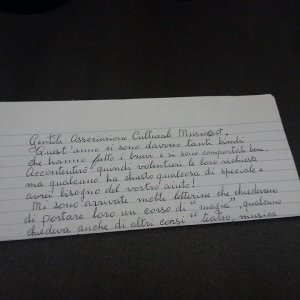 Gentile Associazione Culturale Musicart.
Quest'anno ci sono davvero tanti bimbi
che hanno fatto i bravi e si sono comportati bene.
Accontenterò quindi volentieri le loro richieste
ma qualcuno ha chiesto qualcosa di speciale e
avrei bisogno del vostro aiuto!
Mi sono arrivate molte letterine che chiedevano
di portare loro un corso di "magia", qualcuno
chiedeva anche di altri corsi "teatro, musica